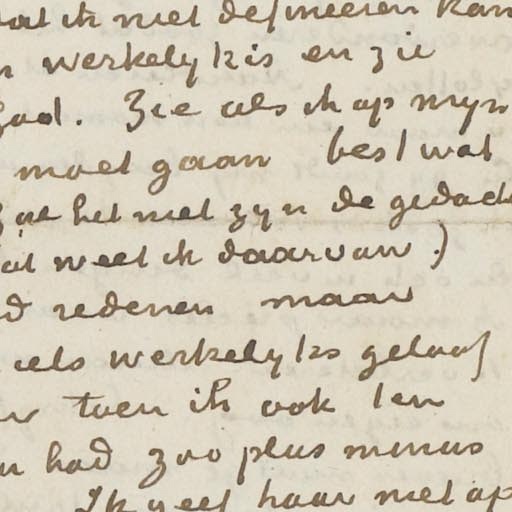 ik niet definieeren kan
werkelijk is en zie
Zie als ik op mijn
moet gaan best wat
het met zyn de gedach
weet ik daarvan)
redenen maar
als werkelyks geloof
toen ik ook ten
had zoo plus minus
Ik geef haar niet op